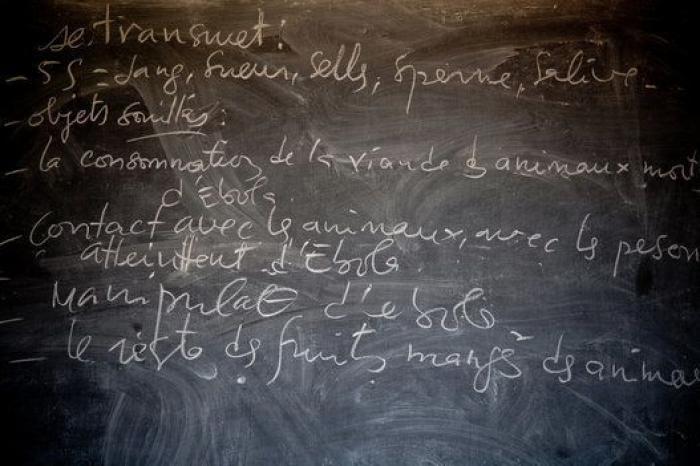 se transmet :
- 5 S = Sang, Sueur, Sells, Sperme, Salive -
- objets souillés :
- la consommation de la viande ds animaux mort
d'Ebola
- Contact avec ls animaux, avec ls person
atteintent d'Ebola
- d'ebola
- le reste ds fruits mangé ds animau